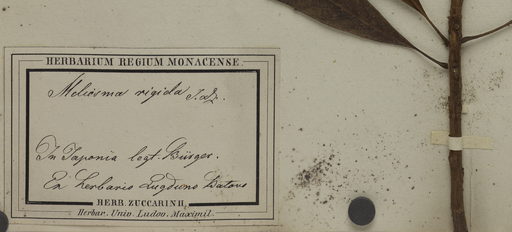 HERBARIUM REGIUM MONACENSE.
Meliosma rigida S. Z.
In Japonia legt. Bürger.
Ex herbario Lugduno Batavo
HERB. ZUCCARINII,
Herbar. Univ. Ludov. Maximil.